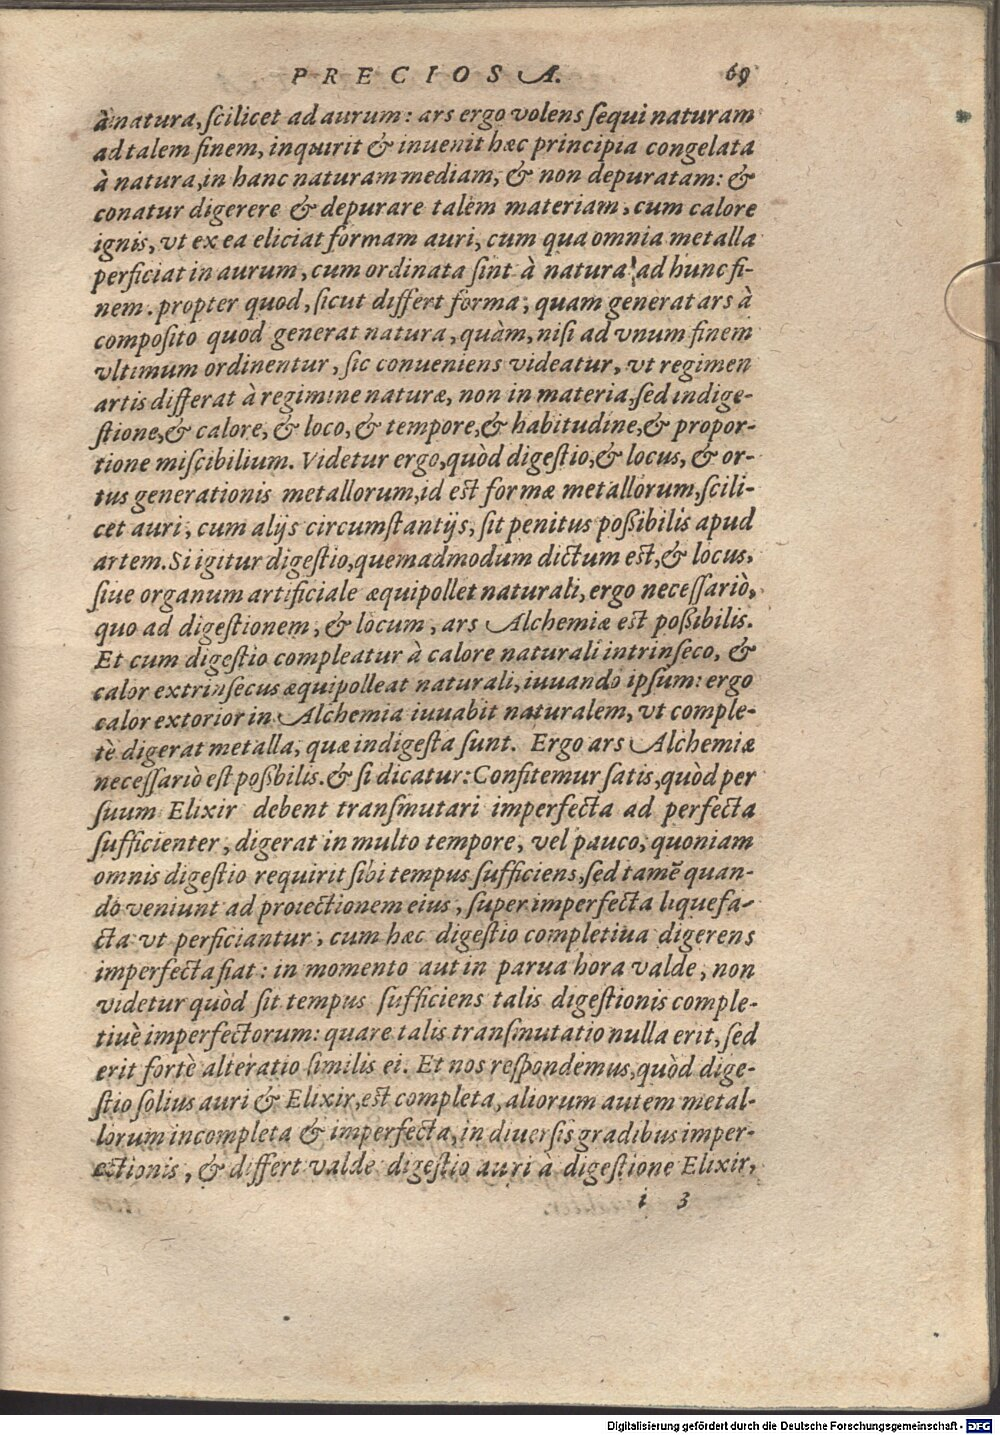 PRECIOSA. 69
à natura, scilicet ad aurum: ars ergo volens sequi naturam
ad talem finem, inquirit & inuenit hæc principia congelata
à natura, in hanc naturam mediam, & non depuratam: &
conatur digerere & depurare talem materiam, cum calore
ignis, vt ex ea eliciat formam auri, cum qua omnia metalla
perficiat in aurum, cum ordinata sint à natura ad hunc fi-
nem. propter quod, sicut differt forma, quam generat ars à
composito quod generat natura, quàm, nisi ad vnum finem
vltimum ordinentur, sic conueniens videatur, vt regimen
artis differat à regimine naturæ, non in materia, sed in dige-
stione, & calore, & loco, & tempore, & habitudine, & propor-
tione miscibilium. Videtur ergo, quòd digestio, & locus, & or-
tus generationis metallorum, id est formæ metallorum, scili-
cet auri, cum alijs circumstantijs, sit penitus poßibilis apud
artem. Si igitur digestio, quemadmodum dictum est, & locus,
siue organum artificiale æquipollet naturali, ergo necessariò,
quo ad digestionem, & locum, ars Alchemiæ est poßibilis.
Et cum digestio compleatur à calore naturali intrinseco, &
calor extrinsecus æquipolleat naturali, iuuando ipsum: ergo
calor extorior in Alchemia iuuabit naturalem, vt comple-
tè digerat metalla, quæ indigesta sunt. Ergo ars Alchemiæ
necessariò est poßbilis. & si dicatur: Confitemur satis, quòd per
suum Elixir debent transmutari imperfecta ad perfecta
sufficienter, digerat in multo tempore, vel pauco, quoniam
omnis digestio requirit sibi tempus sufficiens, sed tamẽ quan-
do veniunt ad proiectionem eius, super imperfecta liquefa-
cta vt perficiantur, cum hæc digestio completiua digerens
imperfecta fiat: in momento aut in parua hora valde, non
videtur quòd sit tempus sufficiens talis digestionis comple-
tiuè imperfectorum: quare talis transmutatio nulla erit, sed
erit fortè alteratio similis ei. Et nos respondemus, quòd dige-
stio solius auri & Elixir, est completa, aliorum autem metal-
lorum incompleta & imperfecta, in diuersis gradibus imper-
ectionis, & differt valde digestio auri à digestione Elixir,
i 3
Digitalisierung gefördert durch die Deutsche Forschungsgemeinschaft - DFG